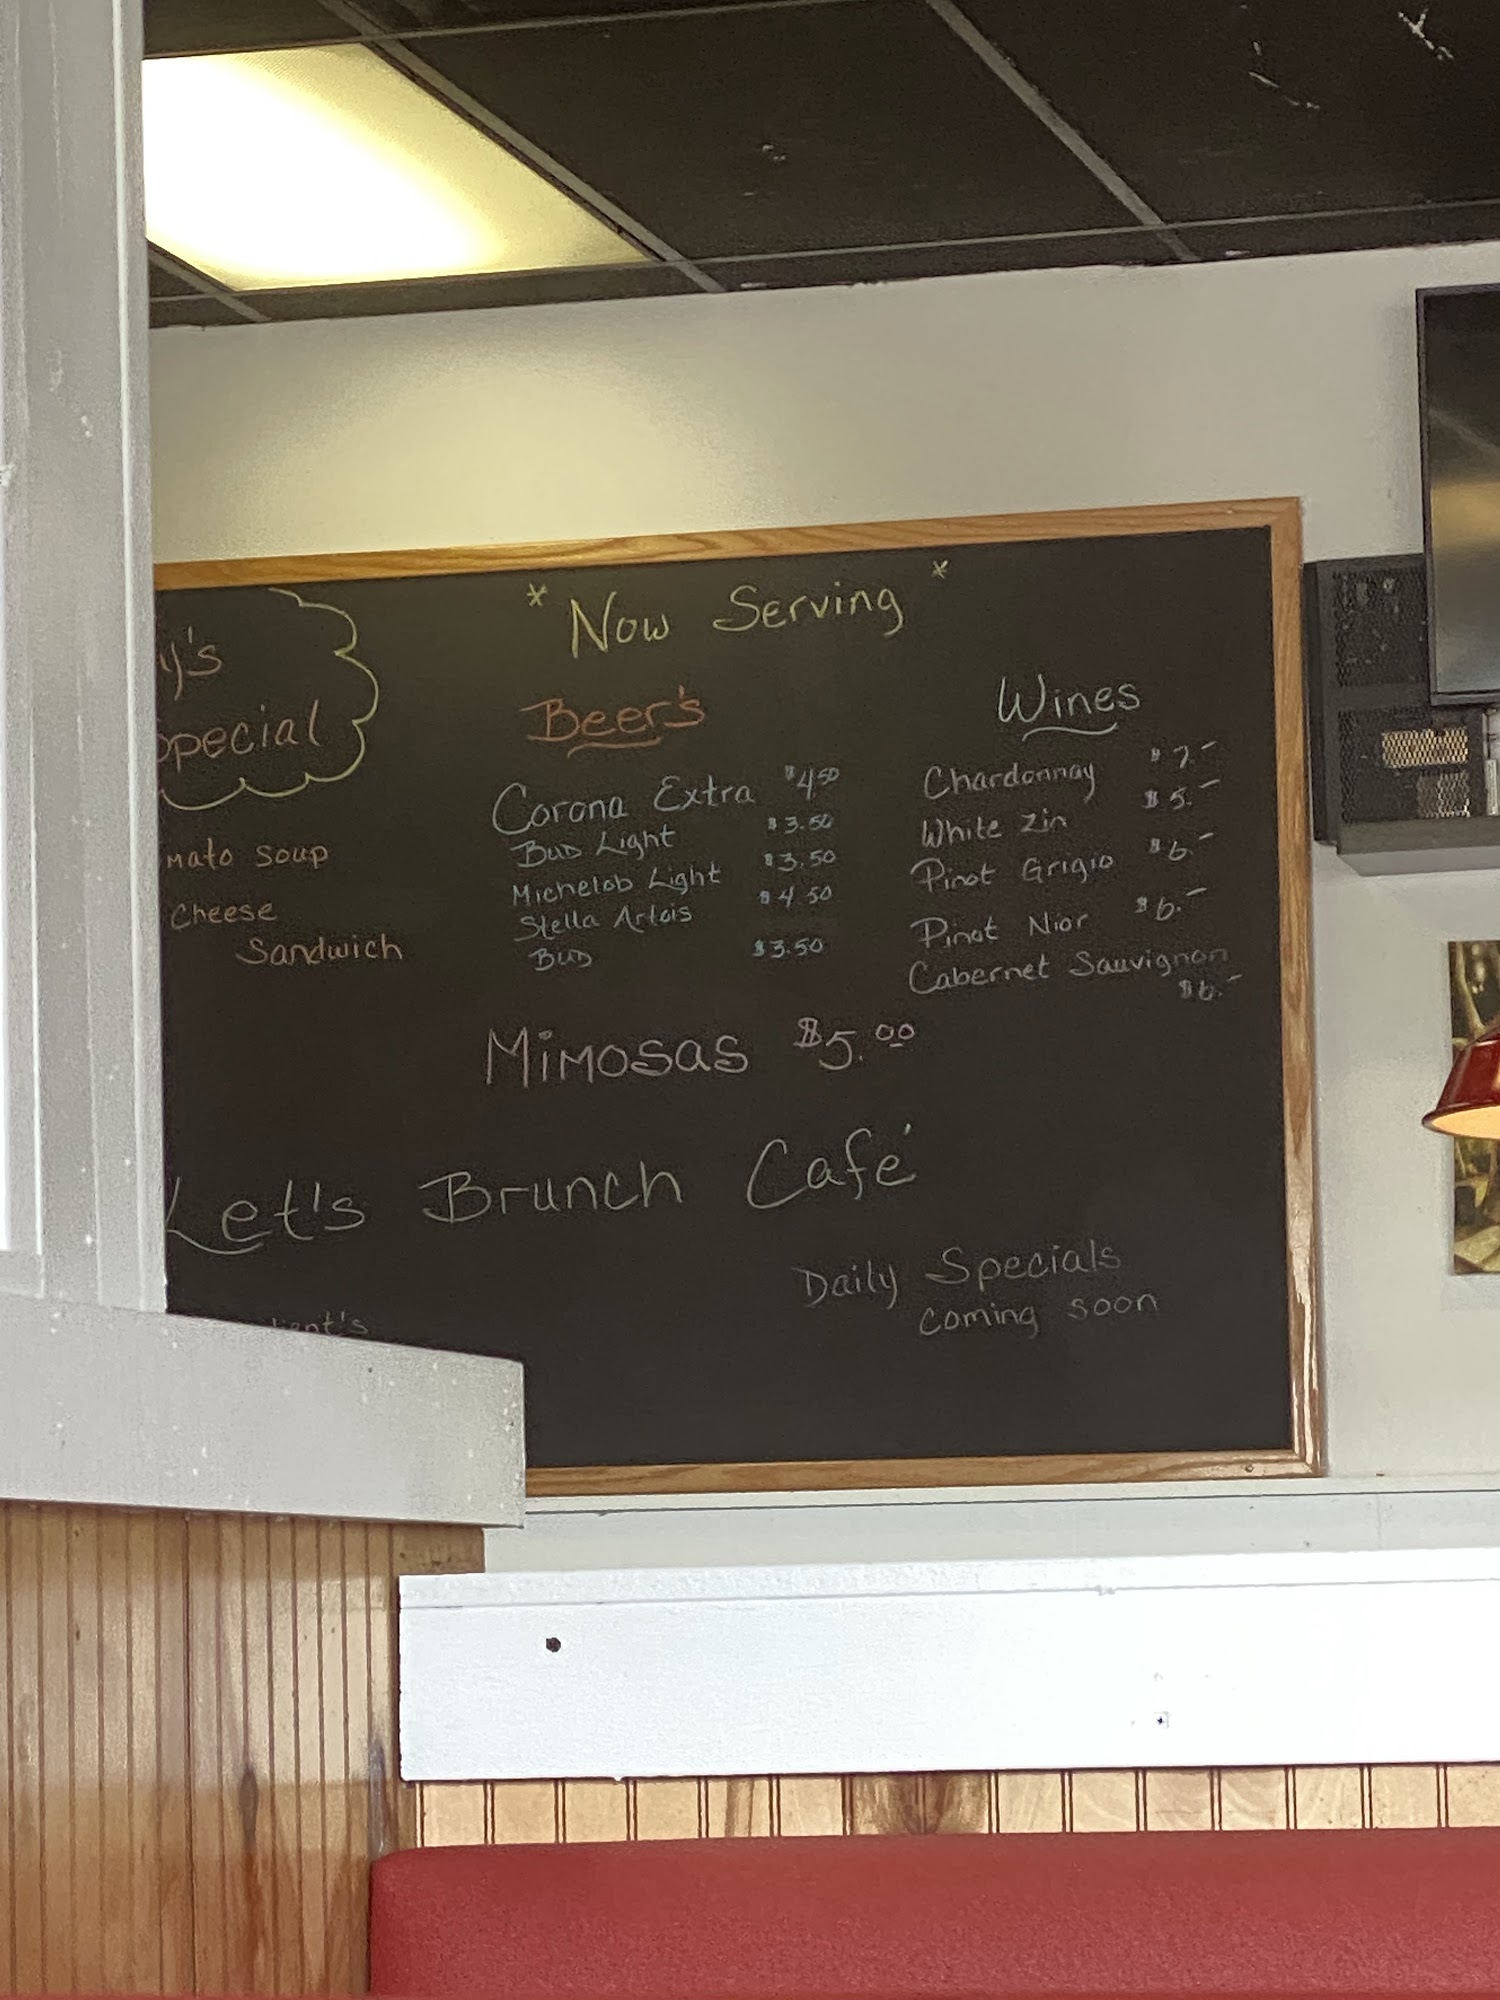 * Now Serving *
y's
Special
mato Soup
Cheese
Sandwich
Beer's
Corona Extra $4.50
Bud Light $3.50
Michelob Light $3.50
Stella Artois $4.50
Bud $3.50
Wines
Chardonnay $7.-
White Zin $5.-
Pinot Grigio $6.-
Pinot Nior $6.-
Cabernet Sauvignon
$6.-
Mimosas $5.00
Let's Brunch Café
Daily Specials
coming soon